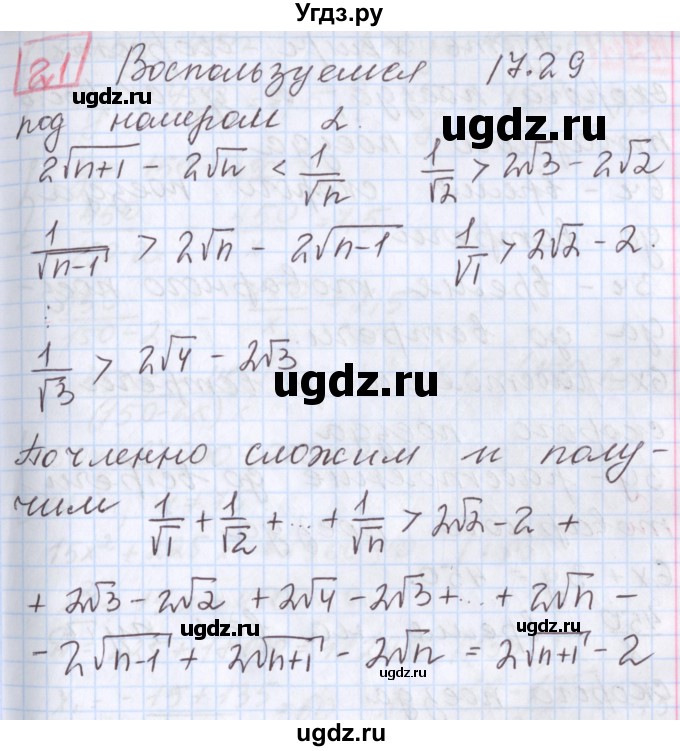 Угдз.ру
21 Воспользуемся 17.29
ugdz.ru
под номером 2.
2√(n+1) - 2√n < 1/√n     1/√2 > 2√3 - 2√2
1/√(n-1) > 2√n - 2√(n-1)     1/√1 > 2√2 - 2.
⋮
1/√3 > 2√4 - 2√3
ugdz.ru
Почленно сложим и полу-
ugdz.ru
чим 1/√1 + 1/√2 + ... + 1/√n > 2√2 - 2 +
+ 2√3 - 2√2 + 2√4 - 2√3 + ... + 2√n -
ugdz.ru
- 2√(n-1) + 2√(n+1) - 2√n = 2√(n+1) - 2
ugdz.ru
ugdz.ru